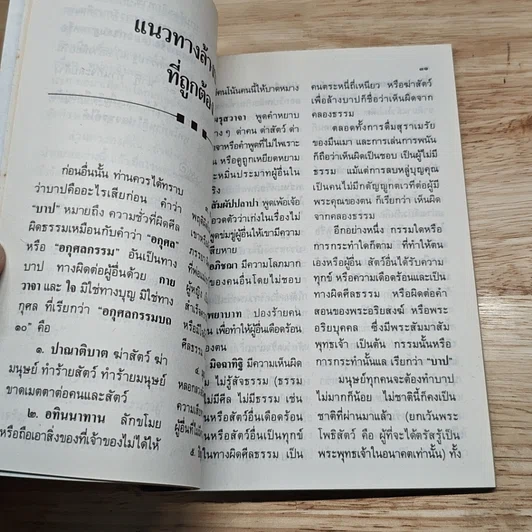 แนวทางล้าง
ที่ถูกต้อง
ก่อนอื่นนั้น ท่านควรได้ทราบ
ว่าบาปคืออะไรเสียก่อน คำว่า
"บาป" หมายถึง ความชั่วที่ผิดศีล
ผิดธรรมเหมือนกับคำว่า "อกุศล"
หรือ "อกุศลกรรม" อันเป็นทาง
บาป ทางผิดต่อผู้อื่นด้วย กาย
วาจา และ ใจ มิใช่ทางบุญ มิใช่ทาง
กุศล ที่เรียกว่า "อกุศลกรรมบถ
๑๐" คือ
๑. ปาณาติบาต ฆ่าสัตว์ ฆ่า
มนุษย์ ทำร้ายสัตว์ ทำร้ายมนุษย์
ขาดเมตตาต่อคนและสัตว์
๒. อทินนาทาน ลักขโมย
หรือถือเอาสิ่งของที่เจ้าของไม่ได้ให้
คนโน้นคนนี้ให้บาดหมาง
รุสวาจา พูดคำหยาบ
าง ๆ ด่าคน ด่าสัตว์ ด่า
จาหรือคำพูดที่ไม่ไพเราะ
หรือดูถูกเหยียดหยาม
หมิ่นประมาทผู้อื่นใน
ริง
สัมผัปปลาปา พูดเพ้อเจ้อ
อวดตัวว่าเก่งในเรื่องไม่
พูดข่มขู่ผู้อื่นให้เขามีความ
สียหาย
อภิชฌา มีความโลภมาก
ของคนอื่นโดยไม่ชอบ
พยาบาท ปองร้ายคน
เพื่อทำให้ผู้อื่นเดือดร้อน
งตน
มิจฉาทิฐิ มีความเห็นผิด
ไม่รู้สัจธรรม (ธรรม
ไม่มีศีล ไม่มีธรรม เช่น
หรือสัตว์อื่นเดือดร้อน
หรือสัตว์อื่นเป็นทุกข์
ในทางผิดศีลธรรม เป็น
คนตระหนี่ถี่เหนียว หรือฆ่าสัตว์
เพื่อล้างบาปก็ชื่อว่าเห็นผิดจาก
คลองธรรม
ตลอดทั้งการดื่มสุราเมรัย
ของมึนเมา และการเล่นการพนัน
ก็ถือว่าเห็นผิดเป็นชอบ เป็นผู้ไม่มี
ธรรม แม้แต่การลบหลู่บุญคุณ
เป็นคนไม่มีกตัญญูกตเวทีต่อผู้มี
พระคุณของตน ก็เรียกว่า เห็นผิด
จากคลองธรรม
อีกอย่างหนึ่ง กรรมใดหรือ
การกระทำใดก็ตาม ที่ทำให้ตน
เองหรือผู้อื่น สัตว์อื่นได้รับความ
ทุกข์ หรือความเดือดร้อนและเป็น
ทางผิดศีลธรรม หรือผิดต่อคำ
สอนของพระอริยสงฆ์ หรือพระ
อริยบุคคล ซึ่งมีพระสัมมาสัม
พุทธเจ้า เป็นต้น กรรมนั้นหรือ
การกระทำนั้นแล เรียกว่า "บาป"
มนุษย์ทุกคนจะต้องทำบาป
ไม่มากก็น้อย ไม่ชาตินี้ก็คงเป็น
ชาติที่ผ่านมาแล้ว (ยกเว้นพระ
โพธิสัตว์ คือ ผู้ที่จะได้ตรัสรู้เป็น
พระพุทธเจ้าในอนาคตเท่านั้น) ทั้ง